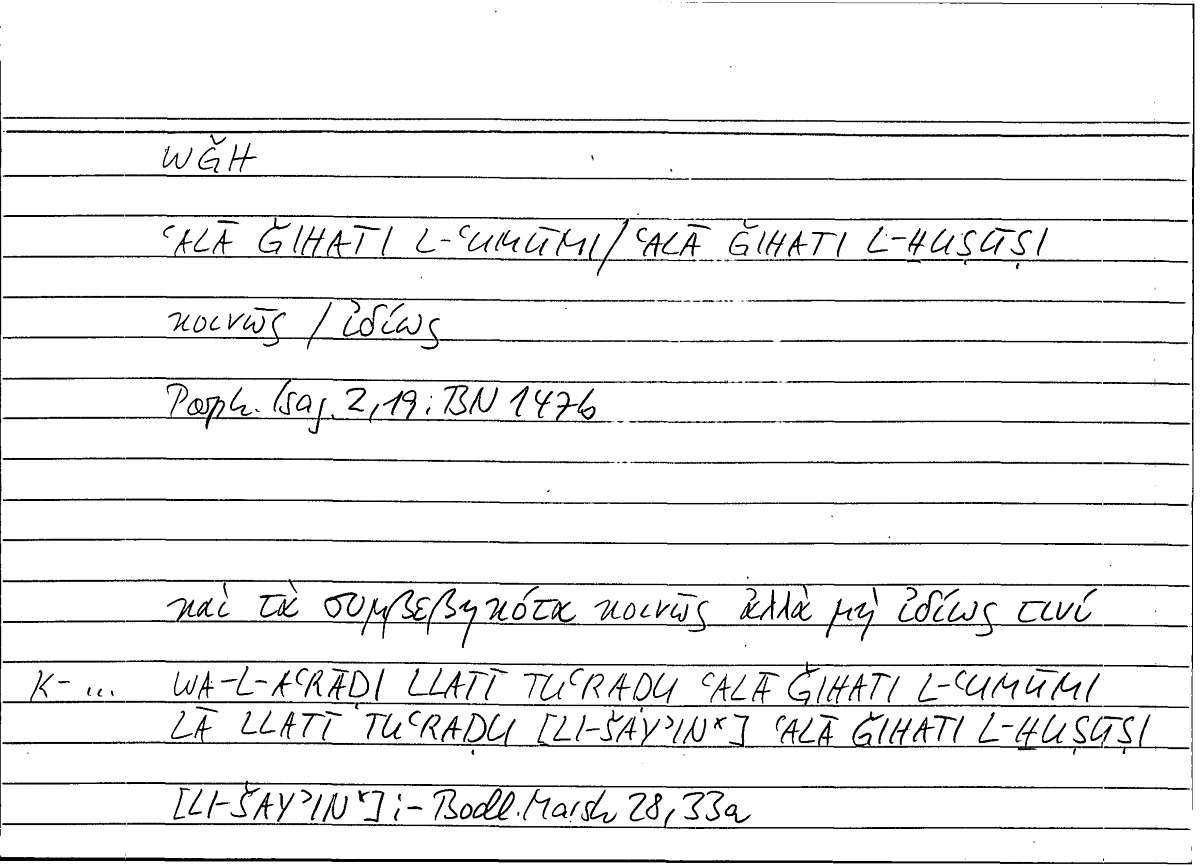 WǦH
ʿALĀ ǦIHATI L-ʿUMŪMI/ʿALĀ ǦIHATI L-ḪUṢŪṢI
κοινῶς / ἰδίως
Porph. Isag. 2,19; BN 147b
καὶ τὰ συμβεβηκότα κοινῶς ἀλλὰ μὴ ἰδίως τινί
K- ... WA-L-AʿRĀḌI LLATĪ TUʿRAḌU ʿALĀ ǦIHATI L-ʿUMŪMI
LĀ LLATĪ TUʿRAḌU [LI-ŠAYʾIN*] ʿALĀ ǦIHATI L-ḪUṢŪṢI
[LI-ŠAYʾIN*] :- Bodl. Marsh 28, 33a